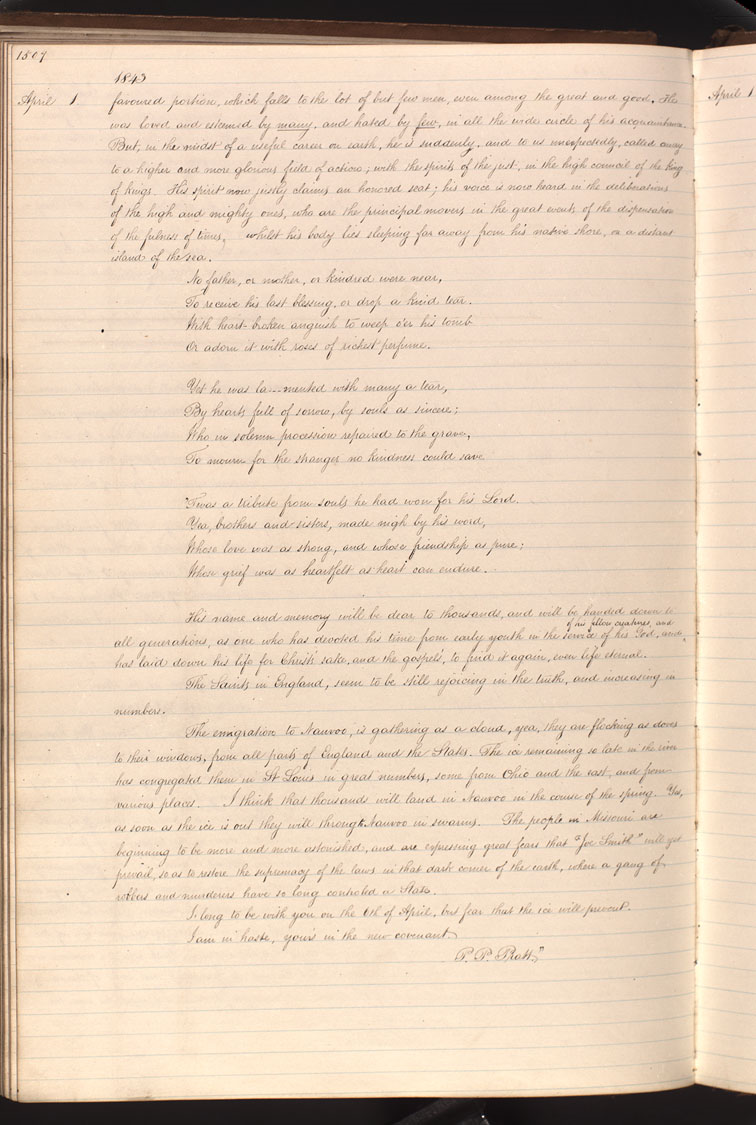 1507
1843
April 1 favoured portion, which falls to the lot of but few men, even among the great and good. He
was loved and esteemed by many, and hated by few, in all the wide circle of his acquaintance.
But, in the midst of a useful career on earth, he is suddenly, and to us unexpectedly, called away
to a higher and more glorious field of action; with the spirits of the just, in the high council of the king
of kings. His spirit now justly claims an honored seat; his voice is now heard in the deliberations
of the high and mighty ones, who are the principal movers in the great events of the dispensation
of the fulness of times, whilst his body lies sleeping far away from his native shore, on a distant
island of the sea.
No father, or mother, or kindred were near,
To receive his last blessing, or drop a kind tear.
With heart-broken anguish to weep o'er his tomb
Or adorn it with roses of richest perfume.
Yet he was la--mented with many a tear,
By hearts full of sorrow, by souls as sincere;
Who in solemn procession repaired to the grave,
To mourn for the stranger no kindness could save.
'Twas a tribute from souls he had won for his Lord.
Yea, brothers and sisters, made nigh by his word,
Whose love was as strong, and whose friendship as pure;
Whose grief was as heartfelt as heart can endure.
His name and memory will be dear to thousands, and will be handed down to
of his fellow creatures, and
all generations, as one who has devoted his time from early youth in the service of his God, and
has laid down his life for Christ's sake, and the gospels, to find it again, even life eternal.
The Saints in England, seem to be still rejoicing in the truth, and increasing in
numbers.
The emigration to Nauvoo, is gathering as a cloud, yea, they are flocking as doves
to their windows, from all parts of England and the States. The ice remaining so late in the river
has congregated them in St Louis in great numbers, some from Ohio and the east, and from
various places. I think that thousands will land in Nauvoo in the course of the spring. Yes,
as soon as the ice is out they will throng to Nauvoo in swarms. The people in Missouri are
beginning to be more and more astonished, and are expressing great fears that "Joe Smith" will yet
prevail, so as to restore the supremacy of the laws in that dark corner of the earth, where a gang of
robbers and murderers have so long controled a State.
I long to be with you on the 6th of April, but fear that the ice will prevent.
I am in haste, yours in the new covenant.
P. P. Pratt."
April 1